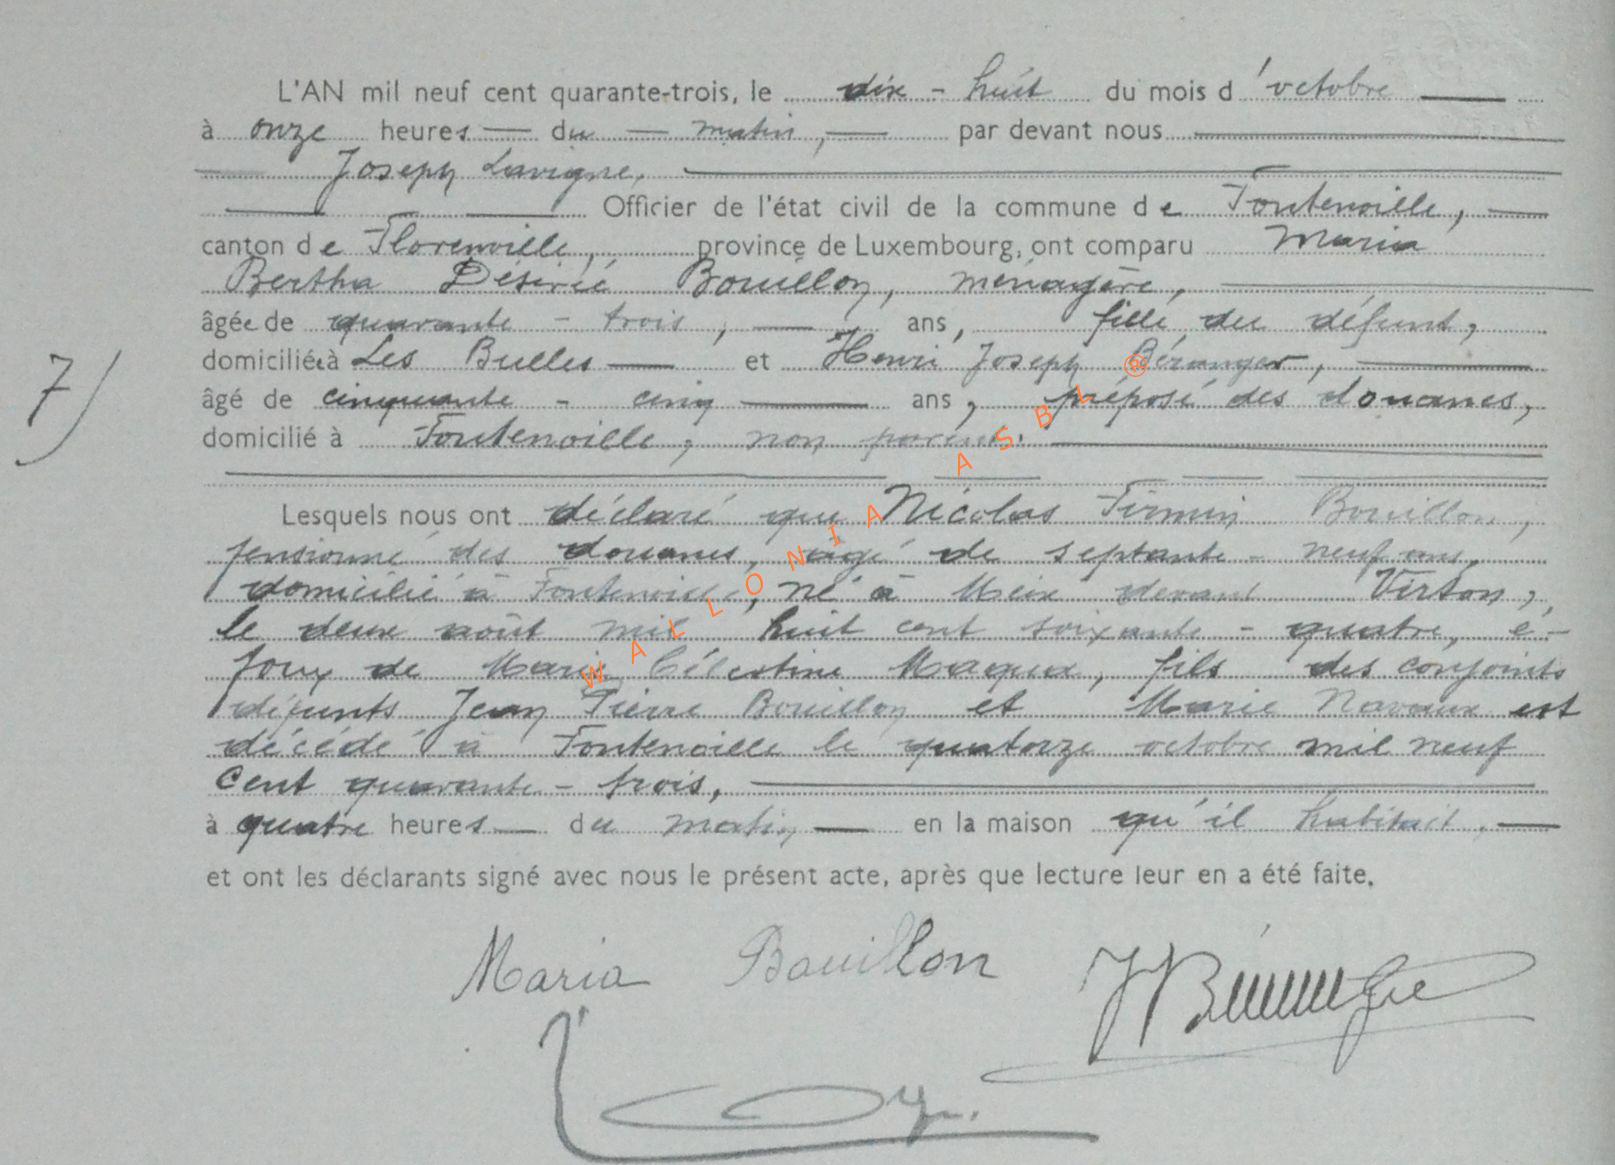 L'AN mil neuf cent quarante-trois, le dix - huit du mois d'octobre
à onze heures du matin, par devant nous
Joseph Lavigne,
Officier de l'état civil de la commune de Fontenoille,
canton de Florenville, province de Luxembourg, ont comparu Maria
Bertha Desirée Bouillon, ménagère,
âgée de quarante - trois, ans, fille du défunt,
domiciliée à Les Bulles et Henri Joseph Béranger,
7) âgé de cinquante - cinq ans, préposé des douanes,
domicilié à Fontenoille, non parents.
Lesquels nous ont déclaré que Nicolas Firmin Bouillon,
pensionné des douanes, agé de septante - neuf ans,
domicilié à Fontenoille, né à Meix devant Virton,
le deux août mil huit cent soixante - quatre, é-
poux de Marie Célestine Maqua, fils des conjoints
défunts Jean Pierre Bouillon et Marie Navaux est
décédé à Fontenoille le quatorze octobre mil neuf
cent quarante - trois,
à quatre heures du matin, en la maison qu'il habitait,
et ont les déclarants signé avec nous le présent acte, après que lecture leur en a été faite.
Maria Bouillon
WALLONIA ASBL ®